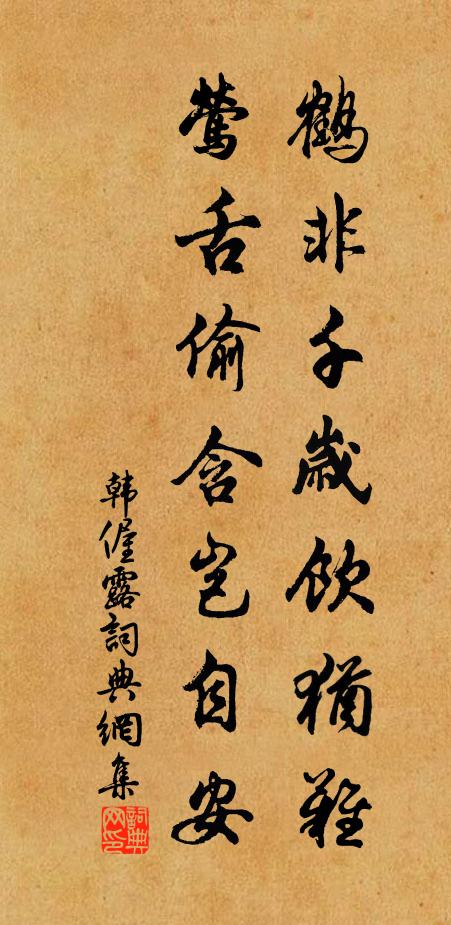 鶴非千歲飲猶難
鶯舌偷含豈自安
韩偓露詞典網集
詞典網印